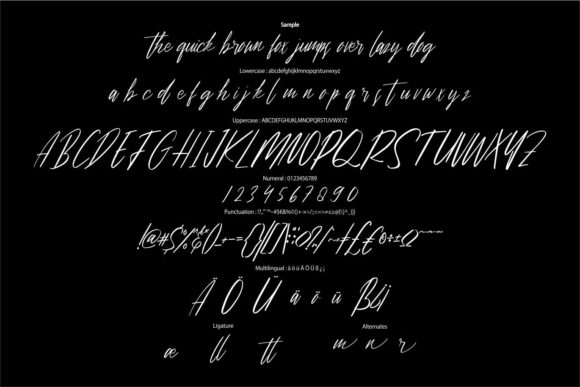 Sample
the quick brown fox jumps over lazy dog
Lowercase : abcdefghijklmnopqrstuvwxyz
a b c d e f g h i j k l m n o p q r s t u v w x y z
Uppercase : ABCDEFGHIJKLMNOPQRSTUVWXYZ
ABCDEFGHIJKLMNOPQRSTUVWXYZ
Numeral : 0123456789
1234567890
Punctuation :
Multilingual : ä ö ü Ä Ö Ü ß ¿ ¡
Ä Ö Ü ä ö ü ß¿¡
Ligature Alternates
æ ll tt m n r